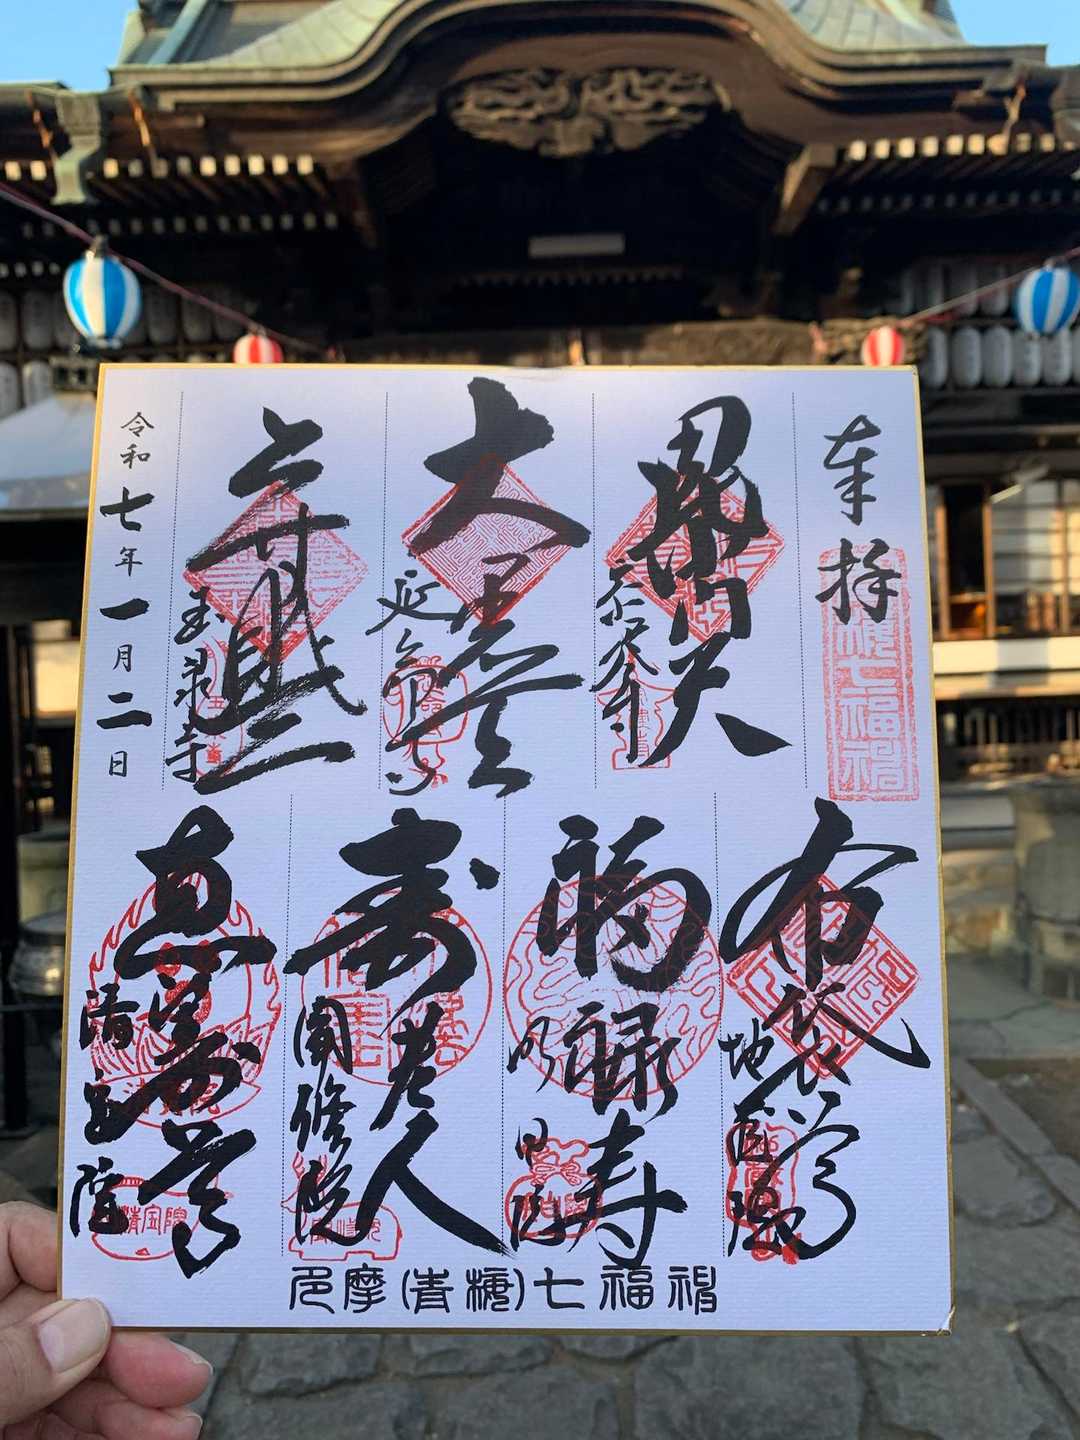 奉拝
毘沙門天
大黒天
延命寺
弁財天
玉泉寺
令和七年一月二日
布袋尊
地蔵院
福禄寿
明白院
寿老人
聞修院
恵比寿尊
清宝院
多摩(青梅)七福神